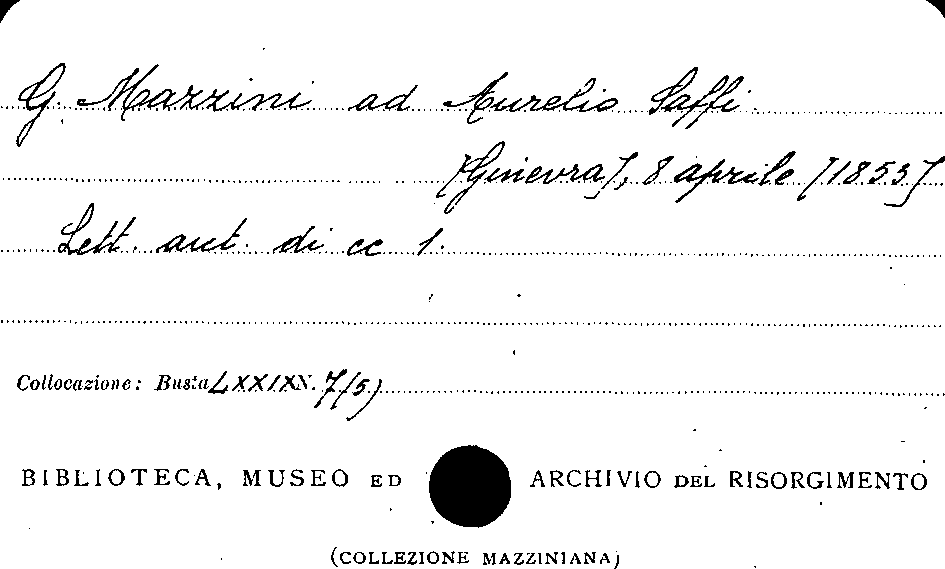 G. Mazzini ad Aurelio Saffi.
[Ginevra], 8 aprile [1853]
Lett. aut. di cc 1.
Collocazione: Busta LXXIX N. 7/5)
BIBLIOTECA, MUSEO ED ARCHIVIO DEL RISORGIMENTO
(COLLEZIONE MAZZINIANA)